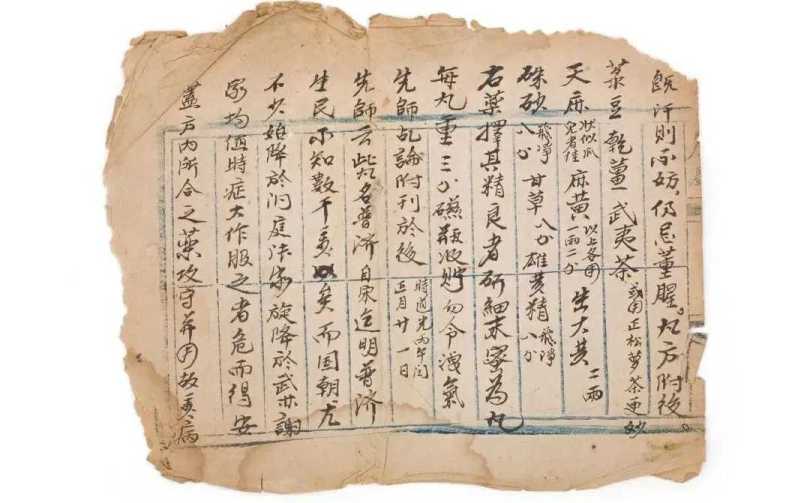 既汗則不妨，仍忌葷腥。丸方附後
菉豆 乾薑 武夷茶 或用正松萝茶更妙
天麻 狀似瓜兒者佳 麻黃 以上各用一兩二分 生大黄 二兩
硃砂 飛净八分 甘草 八分 雄黄精 飛净八分
右藥擇其精良者研細末蜜為丸
每丸重三分磁瓶收貯勿令洩氣
先師乩論附刊於後 時道光丙午閏五月廿一日
先師云此丸名普济自宋迄明普济
生民不知數千矣而国朝尤
不少始降於洞庭法家旋降於武林謝
家均值時症大作服之者危而得安
盖方内所合之藥攻守并用故其病